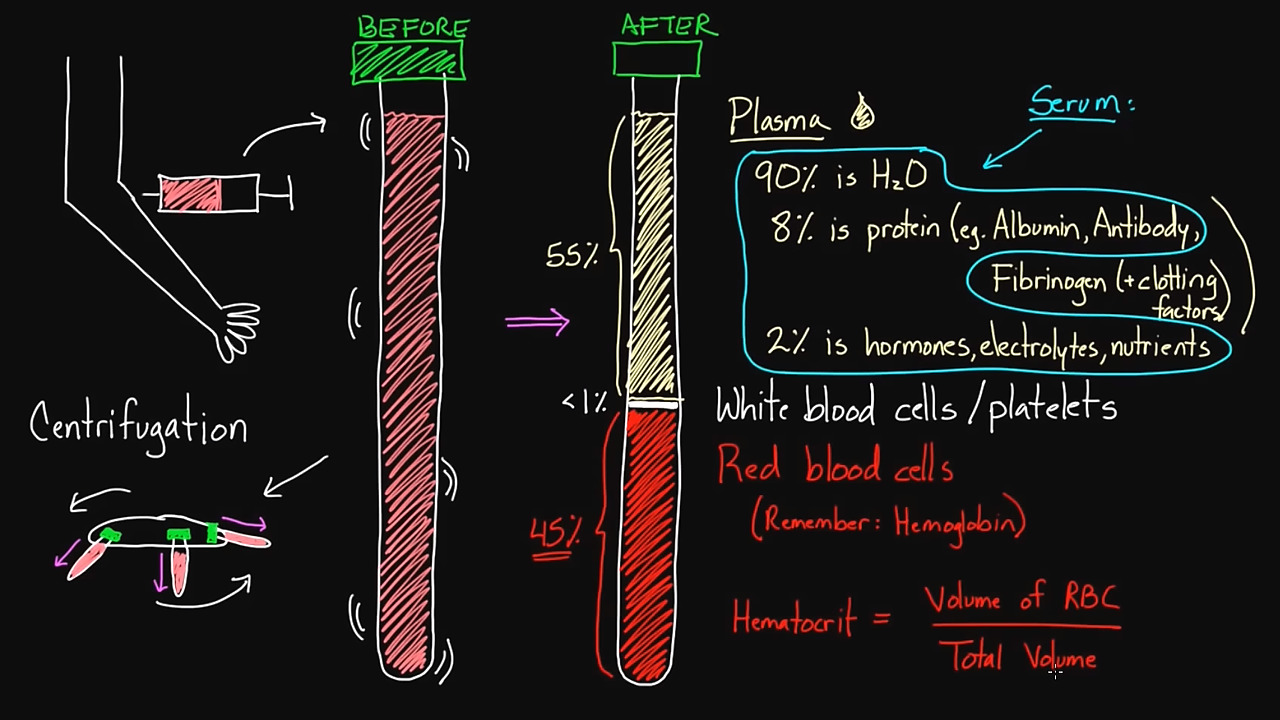 BEFORE
AFTER
Plasma
Serum:
90% is H₂O
8% is protein (eg. Albumin, Antibody,
Fibrinogen (+clotting
factors)
2% is hormones, electrolytes, nutrients
55%
<1%
White blood cells / platelets
Centrifugation
Red blood cells
(Remember: Hemoglobin)
45%
Hematocrit = Volume of RBC
Total Volume